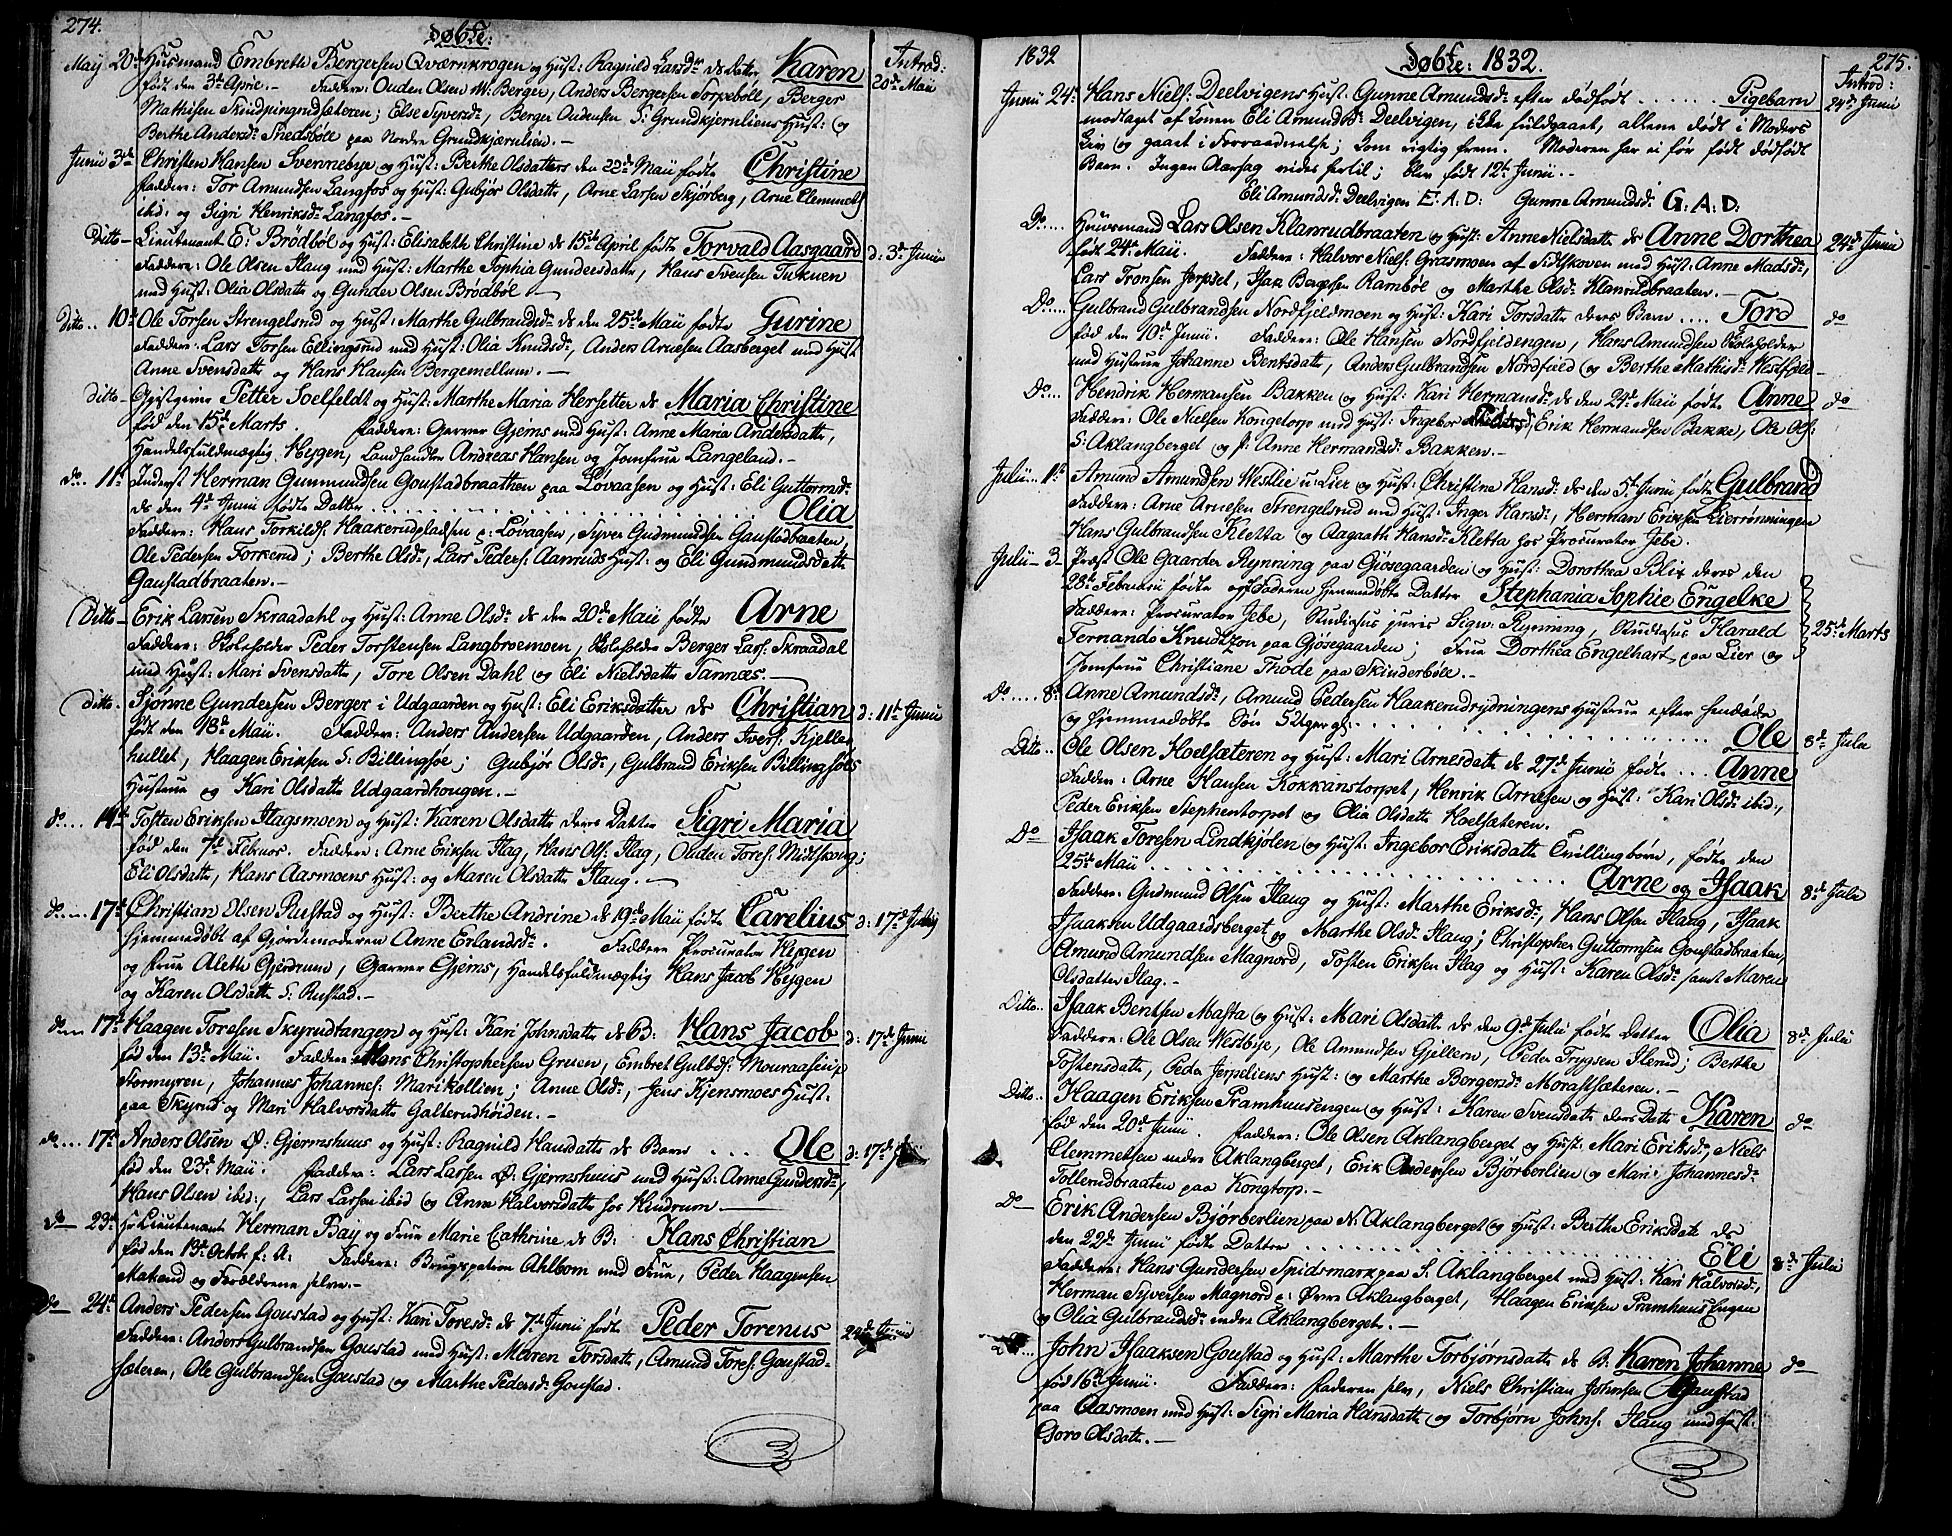 274.
Døbte:
Introd:
Maij 20de Husmand Embreth Bergersen Qværnkrogen og Hust: Ragnild Larsdr ds Datter Karen 20de Maii
født den 3de April.- Faddere: Ouden Olsen Berger, Anders Bergersen Torpeböll, Berger
Mathisen Skidpingrudsæteren; Else Syversdr, Berger Oudensen S: Grundkjernliens Hust: og
Berthe Andersdr paa Nordre Grundkjærnlien.-
Junii 3de Christen Hansen Svennebye og Hust: Berthe Olsdatters den 22de Maii fødte Christine
Faddere: Tor Amundsen Langfos og Hust: Gubjør Olsdatter, Arne Larsen Skjørberg, Arne Clemmetsen
ibid: og Sigri Henriksdr Langfos.-
Ditto- Lieutenant E: Brödböl og Hust: Elisabeth Christine ds 15de April fødte Torvald Aasgaard d: 3de Junii
Faddere: Ole Olsen Haug med Hust: Marthe Sophia Gundersdatter, Hans Svensen Tuknen
med Hust: Olia Olsdatter og Gunder Olsen Brödböl -
Ditto.. 10de Ole Torsen Strengelsrud og Hust: Marthe Gulbrandsdr ds den 25de Maii fødte Gurine
Faddere: Lars Torsen Ellingsrud med Hust: Olia Knudsdr, Anders Arnesen Aasberget med Hust
Anne Svensdatter og Hans Hansen Bergemellum.-
ditto- Gjestgiver Petter Soelfeldt og Hust: Marthe Maria Hersetter ds Maria Christine
fød den 15de Marts. Faddere: Garver Gjems med Hust: Anne Maria Andersdatter,
Handelsfuldmægtig Hejgen, Landhandler Andreas Hansen og Jomfrue Langeland.-
do... 11te Inderst Herman Gunmundsen Goustadbraathen paa Lövaasen og Hust: Eli Guttormsdr
ds den 4de Junii fødte Datter . . . . Olia
Faddere: Hans Torkilds: Haakerudpladsen p: Lövaasen, Syver Gudmundsen Gaustadbraaten,
Ole Pedersen Torkerud; Berthe Olsdr, Lars Peders: Aamruds Hust: og Eli Gundmundsdatter
Gaustadbraaten.-
Ditto- Erik Larsen Skraadahl og Hust: Anne Olsdr ds den 20de Maii fødte Arne
Faddere: Skoleholder Peder Torstensen Langbroemoen, Skoleholder Berger Lars: Skraadal
med Hust: Mari Svensdatter, Tore Olsen Dahl og Eli Nielsdatter Tannæs.-
ditto. Sjønne Gundersen Berger i Udgaarden og Hust: Eli Eriksdatter ds Christian d: 11te Junii
født den 18de Maii. Faddere: Anders Andersen Udgaarden, Anders Ivers: Kjeller
hullet, Haagen Eriksen S: Billingsøe; Gubjør Olsdr, Gulbrand Eriksen Billingsøes
Hustrue og Kari Olsdatter Udgaardhougen.-
do.... 14de Tosten Eriksen Hagsmoen og Hust: Karen Olsdatter deres Datter Sigri Maria
fød den 7de Februar. Faddere: Arne Eriksen Hag, Hans Ols: Hag, Ouden Tores: Midtskoug;
Eli Olsdatter, Hans Aasmoens Hust: og Maren Olsdatter Haug.-
do.... 17de Christian Olsen Rustad og Hust: Berthe Andrine ds 19de Maii fødte Carelius d: 17de Junii
hjemmedøbt af Gjordemoderen Anne Erlandsdr. Faddere Procurator Hejgen
og Frue Aleth Gjerdrum, Garver Gjems, Handelsfuldmægtig Hans Jacob Hejgen
og Karen Olsdatter S: Rustad.-
do... 17de Haagen Toresen Skyrudtangen og Hust: Kari Johnsdatter ds B: Hans Jacob d: 17de Junii
fød den 13de Maii. Faddere Hans Christophersen Gruen, Embret Gulbds: Mouraasen p
Stormyren, Johannes Johannes: Marikollien; Anne Olsdr, Jens Kjensmoes Hust:
paa Skyrud og Mari Halvorsdatter Galterudhøiden.-
do.... 17de Anders Olsen Ø: Gjermshuus og Hust: Ragnild Hansdatter ds Barn . . . . Ole d: 17de Junii
fød den 23de Maii. Faddere: Lars Larsen Ø: Gjermshuus med Hust: Anne Gundersdr,
Hans Olsen ibid:, Lars Larsen ibid og Anne Halvorsdatter hos Hindrum.-
do- 23de Hr Lieutenant Herman Baij og Frue Marie Cathrine ds B: Hans Christian
fød den 13de Octobr f: A: Faddere: Brugspatron Ahlbom med Frue, Peder Haagensen
Matrand og Forældrene selve.-
do- 24de Anders Pedersen Goustad og Hust: Kari Toresdr ds 7de Junii fødte Peder Torenus 24de Junii
Faddere: Anders Gulbrandsen Goustad med Hust: Maren Torsdatter, Amund Tores: Goustad-
sæteren, Ole Gulbrandsen Goustad og Marthe Pedersdr Goustad.
1832
Døbte: 1832.
275.
Introd:
Junii 24de Hans Niels: Deelvigens Hust: Gunne Amundsdr efter dødfødt . . . . . . Pigebarn 24de Junii
modtaget af Konen Eli Amundsdr Deelvigen, ikke fuldgaaet, allene dødt i Moders
Liv og gaaet i Forraadnelse; kom rigtig frem. Moderen har ei før født dødfødt
Barn. Ingen Aarsag vides hertil; blev født 12te Junii.-
Eli Amundsdr Deelvigen E: A: D: Gunne Amundsdr G: A: D:
Do.... Huusmand Lars Olsen Klanrudbraaten og Hust: Anne Nielsdatter ds Anne Dorthea 24de Junii
født 24de Maii. Faddere: Halvor Niels: Grasmoen af Eidskoven med Hust: Anne Madsdr,
Lars Tronsen Jerpset, Isak Bagesen Ramböl og Marthe Olsdr Klanrudbraaten.-
Do.... Gulbrand Gulbrandsen Nordfjeldmoen og Hust: Kari Torsdatter deres Barn .... Tord do
fød den 10de Junii. Faddere: Ole Hansen Nordfjeldengen, Hans Amundsen Skoleholder
med Hustrue Johanne Bentsdatter, Anders Gulbrandsen Nordfield og Berthe Mathisdr Westfield-
Do... Hendrik Hermansen Bakken og Hust: Kari Hermansdr ds den 24de Maii fødte Anne do
Faddere: Ole Nielsen Kongetorp med Hust: Ingebor, Erik Hermansen Bakke, Ole Ols:
S: Aklangberget og P: Anne Hermansdr Bakken.-
Julii.. 1ste Amund Amundsen Westlie u: Lier og Hust: Christine Hansdr ds den 5te Junii fødte Gulbrand
Faddere: Arne Arnesen Strengelsrud med Hust: Inger Hansdr, Herman Eriksen Lierrønningen
Hans Gulbrandsen Kletta og Aagaath Hansdr Kletta hos Procurator Jebe.
Julii- 3- Præst Ole Gaarder Rynning paa Gjösegaarden og Hust: Dorothea Blix deres den
28de Februarii fødte af Faderen hjemmedøbte Datter Stephania Sophie Engelke
Faddere: Procurator Jebe, Studiosus juris Sigw: Rynning, Studiosus Harald 25de Marts
Fernando Knudtzon paa Gjösegaarden; Frue Dorthea Engelhart paa Lier og
Jomfrue Christiane Thode paa Skinderböle.-
Do.... 8de Anne Amundsdr, Amund Pedersen Haakerudrydningens Hustrue efter hendøde
og hjemmedøbte Søn 5 Uger gl. . . . . . Ole 8de Julii
Ditto.. Ole Olsen Hoelsæteren og Hust: Mari Arnesdatter ds 27de Junii fødte ... Anne
Faddere: Arne Hansen Kokkanstorpet, Henrik Arnesen og Hust: Kari Olsdr ibid:,
Peder Eriksen Stephentorpet og Olia Olsdatter Hoelsæteren.
Do Isaak Toresen Lindkjølen og Hust: Ingebor Eriksdatter Tvillingbörn, fødte den
25de Maii . . . . . . Arne og Isaak 8de Julii
Faddere: Gudmund Olsen Haug og Hust: Marthe Eriksdr, Hans Olsen Haug, Isaak
Isaaksen Udgaardsberget og Marthe Olsdr Haug; Christopher Guttormsen Goustadbraaten,
Amund Amundsen Magnord, Tosten Eriksen Hag og Hust: Karen Olsdr samt Maren
Olsdatter Hag.-
Ditto.. Isaak Bentsen Masta og Hust: Mari Olsdatter ds den 9de Julii fødte Datter Olia 8de Julii
Faddere: Ole Olsen Westbye, Ole Amundsen Gjellern, Peder Trygsen Skerud; Berthe
Tostensdatter, Peder Jerpeliens Hust: og Marthe Bergersdr Morastsæteren.-
Ditto.. Haagen Eriksen Pramhuusengen og Hust: Karen Svensdatter deres Datter Karen do
fød den 20de Junii. Faddere: Ole Olsen Aklangberget og Hust: Mari Eriksdr, Niels
Clemmetsen nedre Aklangberget, Erik Andersen Bjørberlien og Mari Johannesdr
Tollerudbraaten paa Kongtorp.-
Do- Erik Andersen Bjørberlien paa N: Aklangberget og Hust: Berthe Eriksdatter ds
den 22de Junii fødte Datter . . . . . . Eli 8de Julii
Faddere: Hans Gundersen Spidsmark paa S: Aklangberget med Hust: Kari Halvorsdr,
Herman Syversen Magnord p: Øvre Aklangberget, Haagen Eriksen Pramhuus Engen
og Olia Gulbrandsdr nedre Aklangberget.-
John Isaaksen Goustad og Hust: Marthe Torbjørnsdatter ds B: Karen Johanne do
fød 16de Junii. Faddere: Faderen selv, Niels Christian Johnsen Gaustad
paa Aasmoen med Hust: Sigri Maria Hansdatter og Torbjørn Johns: Haug med Hust:
Goro Olsdatter.-